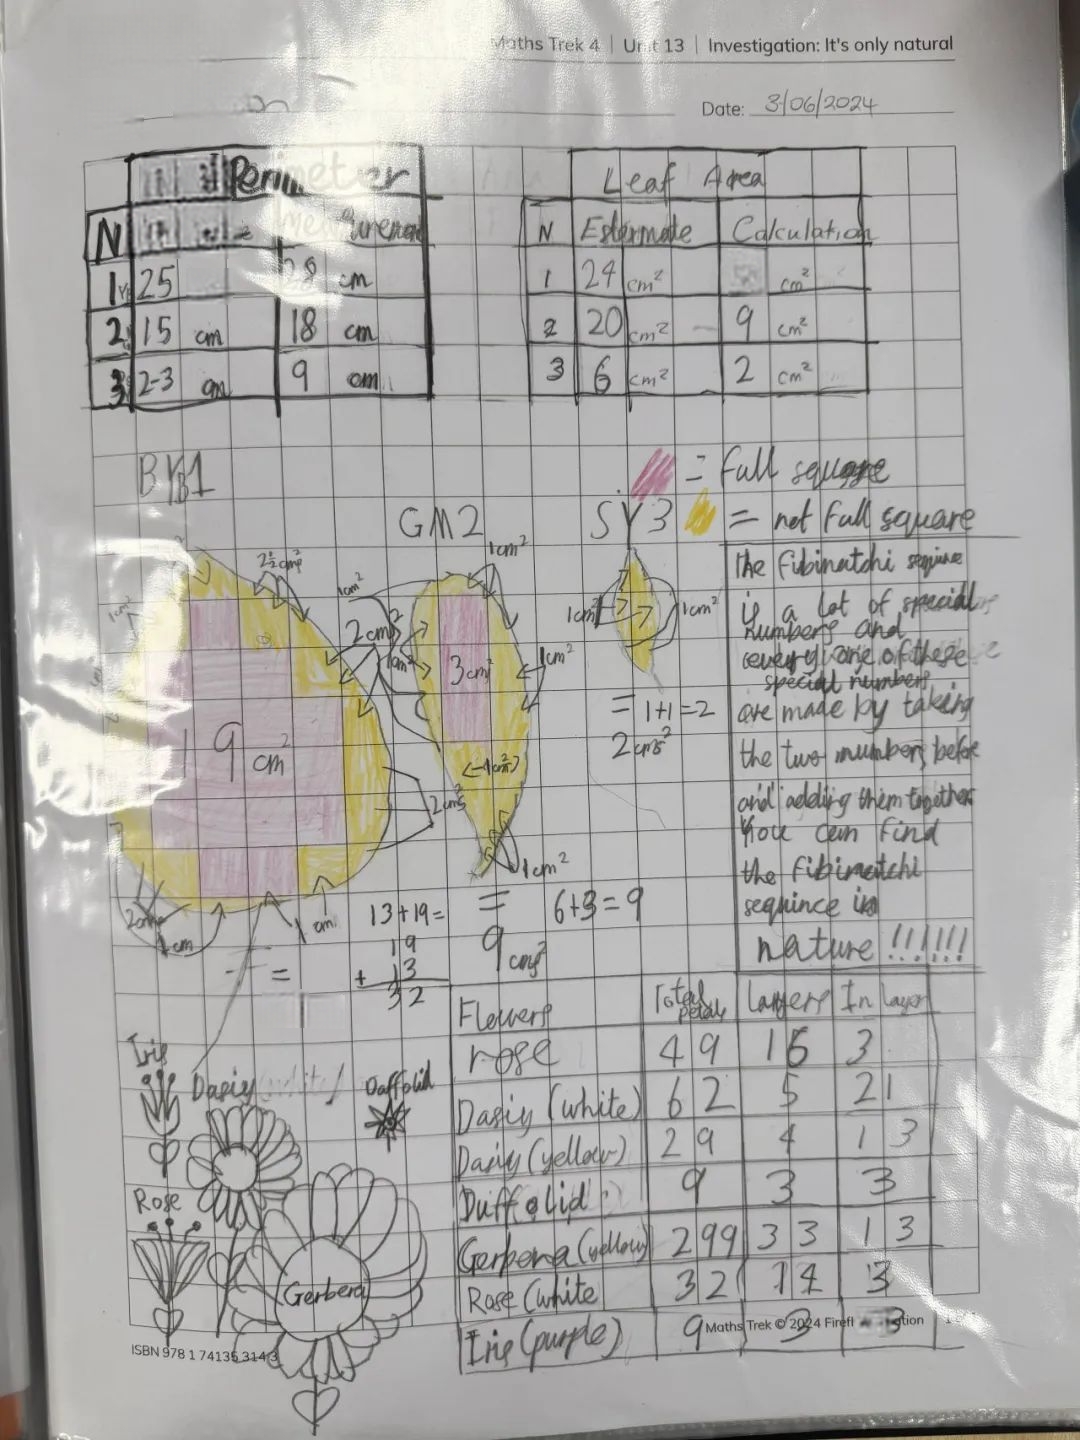 Maths Trek 4 | Unit 13 | Investigation: It's only natural
Date: 3/06/2024
Perimeter
N
1 25 28 cm
2 15 cm 18 cm
3 2-3 cm 9 cm
Leaf Area
N Estermate Calculation
1 24 cm² cm²
2 20 cm² 9 cm²
3 6 cm² 2 cm²
= full square
= not full square
GM2
SY3
2½ cm²
1cm²
19 cm²
2cms
1 cm
1 cm
2cms
13+19=
19
+ 13
32
=
1cm²
1cm²
2cm²
1cm²
3cm²
1cm²
1cm²
= 6+3=9
9 cms²
1cm²
1cm²
= 1+1=2
2 cms²
The fibinatchi
is a lot of special
numbers and
every one of these
special numbers
are made by taking
the two numbers before
and adding them together
You can find
the fibinatchi
sequince in
nature !!!!!!
Iris
Dasiy (white)
Daffolid
Rose
Gerbera
Flowers Total petals Layers In layer
rose 49 16 3
Dasiy (white) 62 5 21
Dasiy (yellow) 29 4 13
Duffolid 9 3 3
Gerbera (yellow) 299 33 13
Rose (white 32 14 3
Iris (purple) 9 3 3
Maths Trek © 2024 Firefl
ISBN 978 1 74135 314 3